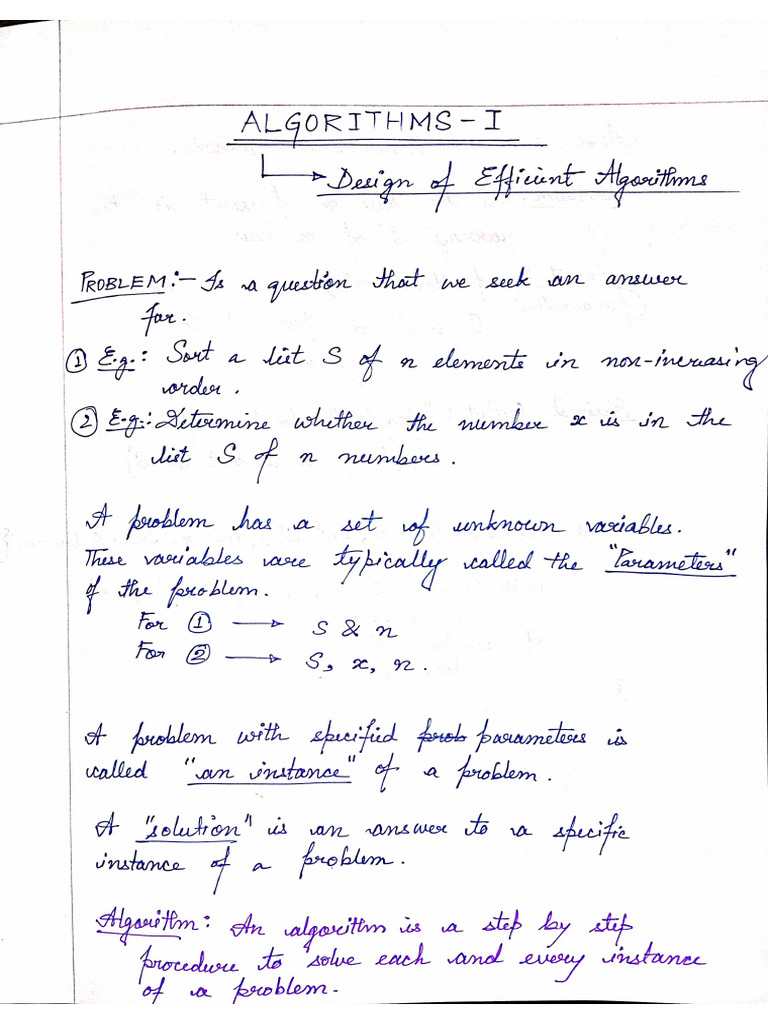 ALGORITHMS - I
Design of Efficient Algorithms
PROBLEM:- Is a question that we seek an answer
for.
① E.g.: Sort a list S of n elements in non-increasing
order.
② E.g.: Determine whether the number x is in the
list S of n numbers.
A problem has a set of unknown variables.
These variables are typically called the "Parameters"
of the problem.
For ① → S & n
For ② → S, x, n.
A problem with specified prob parameters is
called "an instance" of a problem.
A "solution" is an answer to a specific
instance of a problem.
Algorithm: An algorithm is a step by step
procedure to solve each and every instance
of a problem.